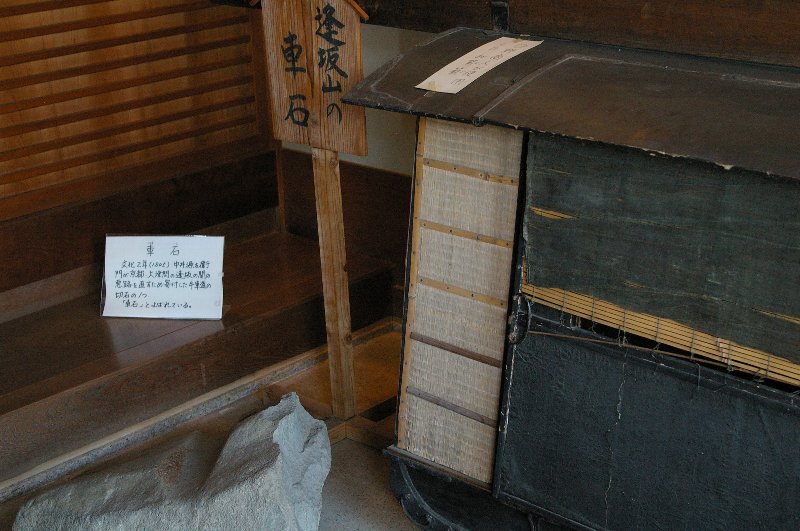 逢坂山の
車石
車石
文化2年(1805)中井源左衛
門が京都、大津間の逢坂の関の
悪路を直すため寄付した牛車道の
切石の1つ
「車石」とよばれている。